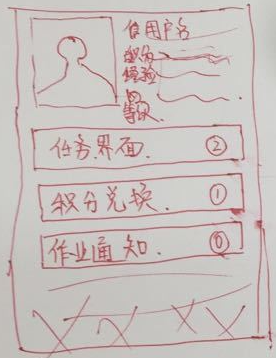 用户名
积分
经验
等级
任务界面. ②
积分兑换. ①
作业通知. ⓪